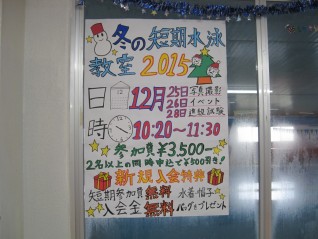 冬の短期水泳
教室2015
日 12月25日写真撮影
26日イベント
28日進級試験
時 10:20～11:30
参加費¥3,500-
2名以上の同時申込で¥500引き!
新規入会特典
短期参加費無料 水着・帽子
入会金無料 バッグプレゼント